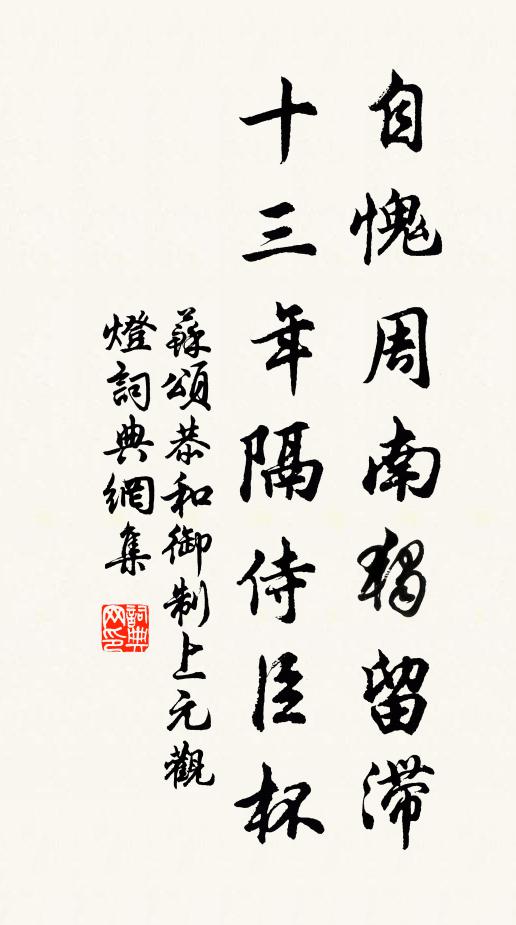 自愧周南獨留滯
十三年隔侍臣杯
蘇頌恭和御制上元觀
燈詞典網集
詞典網印